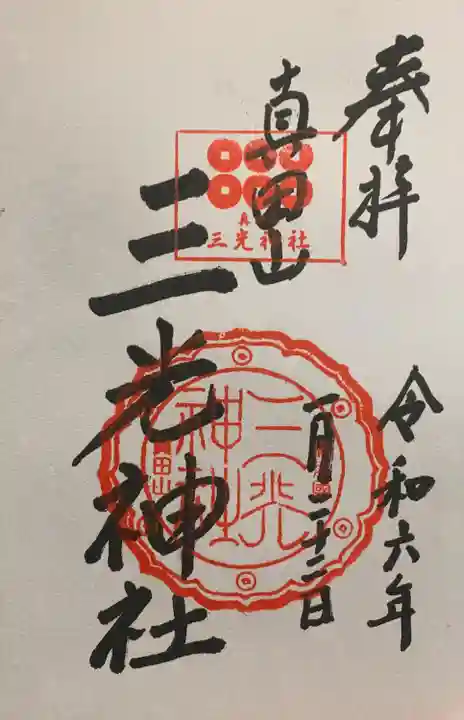 奉拝
令和六年
一月二十二日
真田山
三光神社
真
三光神社
三光
神社
田山